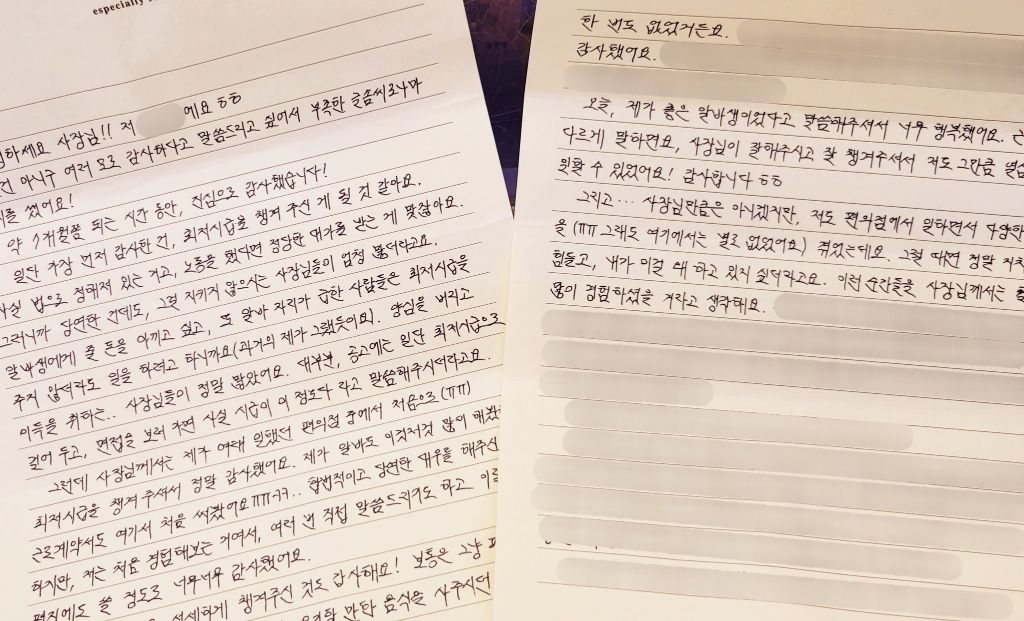 especially
하세요 사장님!! 저 예요 ㅎㅎ
건 아니구 여러 모로 감사하다고 말씀드리고 싶어서 부족한 글솜씨로나마
를 썼어요!
약 7개월쯤 되는 시간 동안, 진심으로 감사했습니다!
일단 가장 먼저 감사한 건, 최저시급을 챙겨 주신 게 될 것 같아요.
사실 법으로 정해져 있는 거고, 노동을 했다면 정당한 대가를 받는 게 맞잖아요.
그러니까 당연한 건데도, 그걸 지키지 않으시는 사장님들이 엄청 많더라고요.
알바생에게 줄 돈을 아끼고 싶고, 또 알바 자리가 급한 사람들은 최저시급을
주지 않더라도 일을 하려고 하니까요(과거의 제가 그랬듯이요). 양심을 버리고
이득을 취하는.. 사장님들이 정말 많았어요. 대부분, 공고에는 일단 최저시급으로
걸어 두고, 면접을 보러 가면 사실 시급이 이 정도다 라고 말씀해주시더라고요.
그런데 사장님께서는 제가 여태 일했던 편의점 중에서 처음으로(ㅠㅠ)
최저시급을 챙겨 주셔서 정말 감사했어요. 제가 알바도 이것저것 많이 해봤
근로계약서도 여기서 처음 써봤어요ㅠㅠㅋㅋ.. 합법적이고 당연한 대우를 해주신
하지만, 저는 처음 경험해보는 거여서, 여러 번 직접 말씀드리기도 하고 이렇
편지에도 쓸 정도로 너무너무 감사했어요.
세세하게 챙겨주신 것도 감사해요! 보통은 그냥
만한 음식을 사주시던
한 번도 없었거든요.
감사했어요.
오늘, 제가 좋은 알바생이었다고 말씀해주셔서 너무 행복했어요.
다르게 말하면요, 사장님이 잘해주시고 잘 챙겨주셔서 저도 그만큼 열심
일할 수 있었어요! 감사합니다 ㅎㅎ
그리고... 사장님만큼은 아니겠지만, 저도 편의점에서 일하면서 다양한
을 (ㅠㅠ 그래도 여기에서는 별로 없었어요) 겪었는데요. 그럴 때면 정말 지치
힘들고, 내가 이걸 왜 하고 있지 싶더라고요. 이런 순간들을 사장님께서는
많이 경험하셨을 거라고 생각해요.